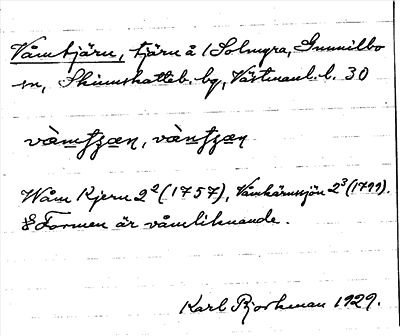 Våmtjärn, tjärn å /Solmyra, Gunnilbo
sn, Skinnskatteb. bg, Västmanl. l. 30
Wåm Kjern 2² (1757), Våmkärnssjön 2³ (1799).
Formen är våmliknande.
Karl Bjorkman 1929.